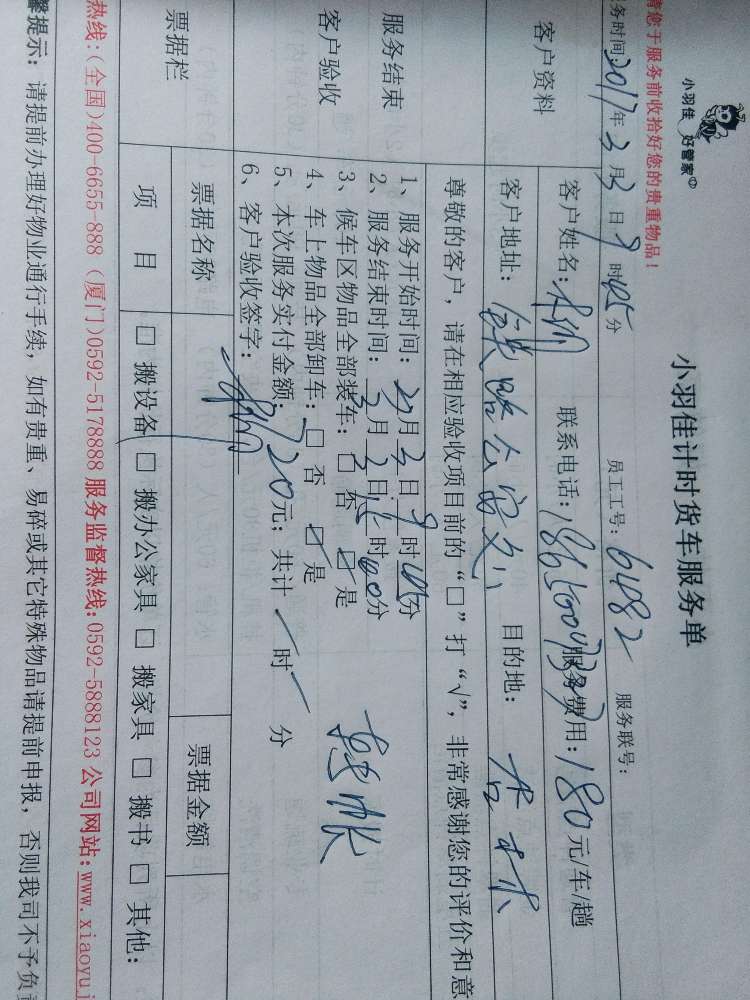 小羽佳 好管家
小羽佳计时货车服务单
请您于服务前收拾好您的贵重物品！
员工工号：6482 服务联号：
务时间：2017年3月3日9时05分
客户资料
客户姓名： 联系电话： 服务费用：180元/车/趟
客户地址：铁路公寓 目的地：杏林
服务结束
客户验收
尊敬的客户，请在相应验收项目前的“□”打“√”，非常感谢您的评价和意
1、服务开始时间：3月3日9时05分
2、服务结束时间：3月3日12时00分
3、候车区物品全部装车：□ 否 □ 是
4、车上物品全部卸车：□ 否 □ 是
5、本次服务实付金额：720元；共计 时 分
6、客户验收签字：
转帐
票据栏
票据名称 票据金额
项 目 □ 搬设备 □ 搬办公家具 □ 搬家具 □ 搬书 □ 其他：
热线：(全国)400-6655-888 (厦门)0592-5178888 服务监督热线：0592-5888123 公司网站：www.xiaoyuj
馨提示：请提前办理好物业通行手续，如有贵重、易碎或其它特殊物品请提前申报，否则我司不予负责